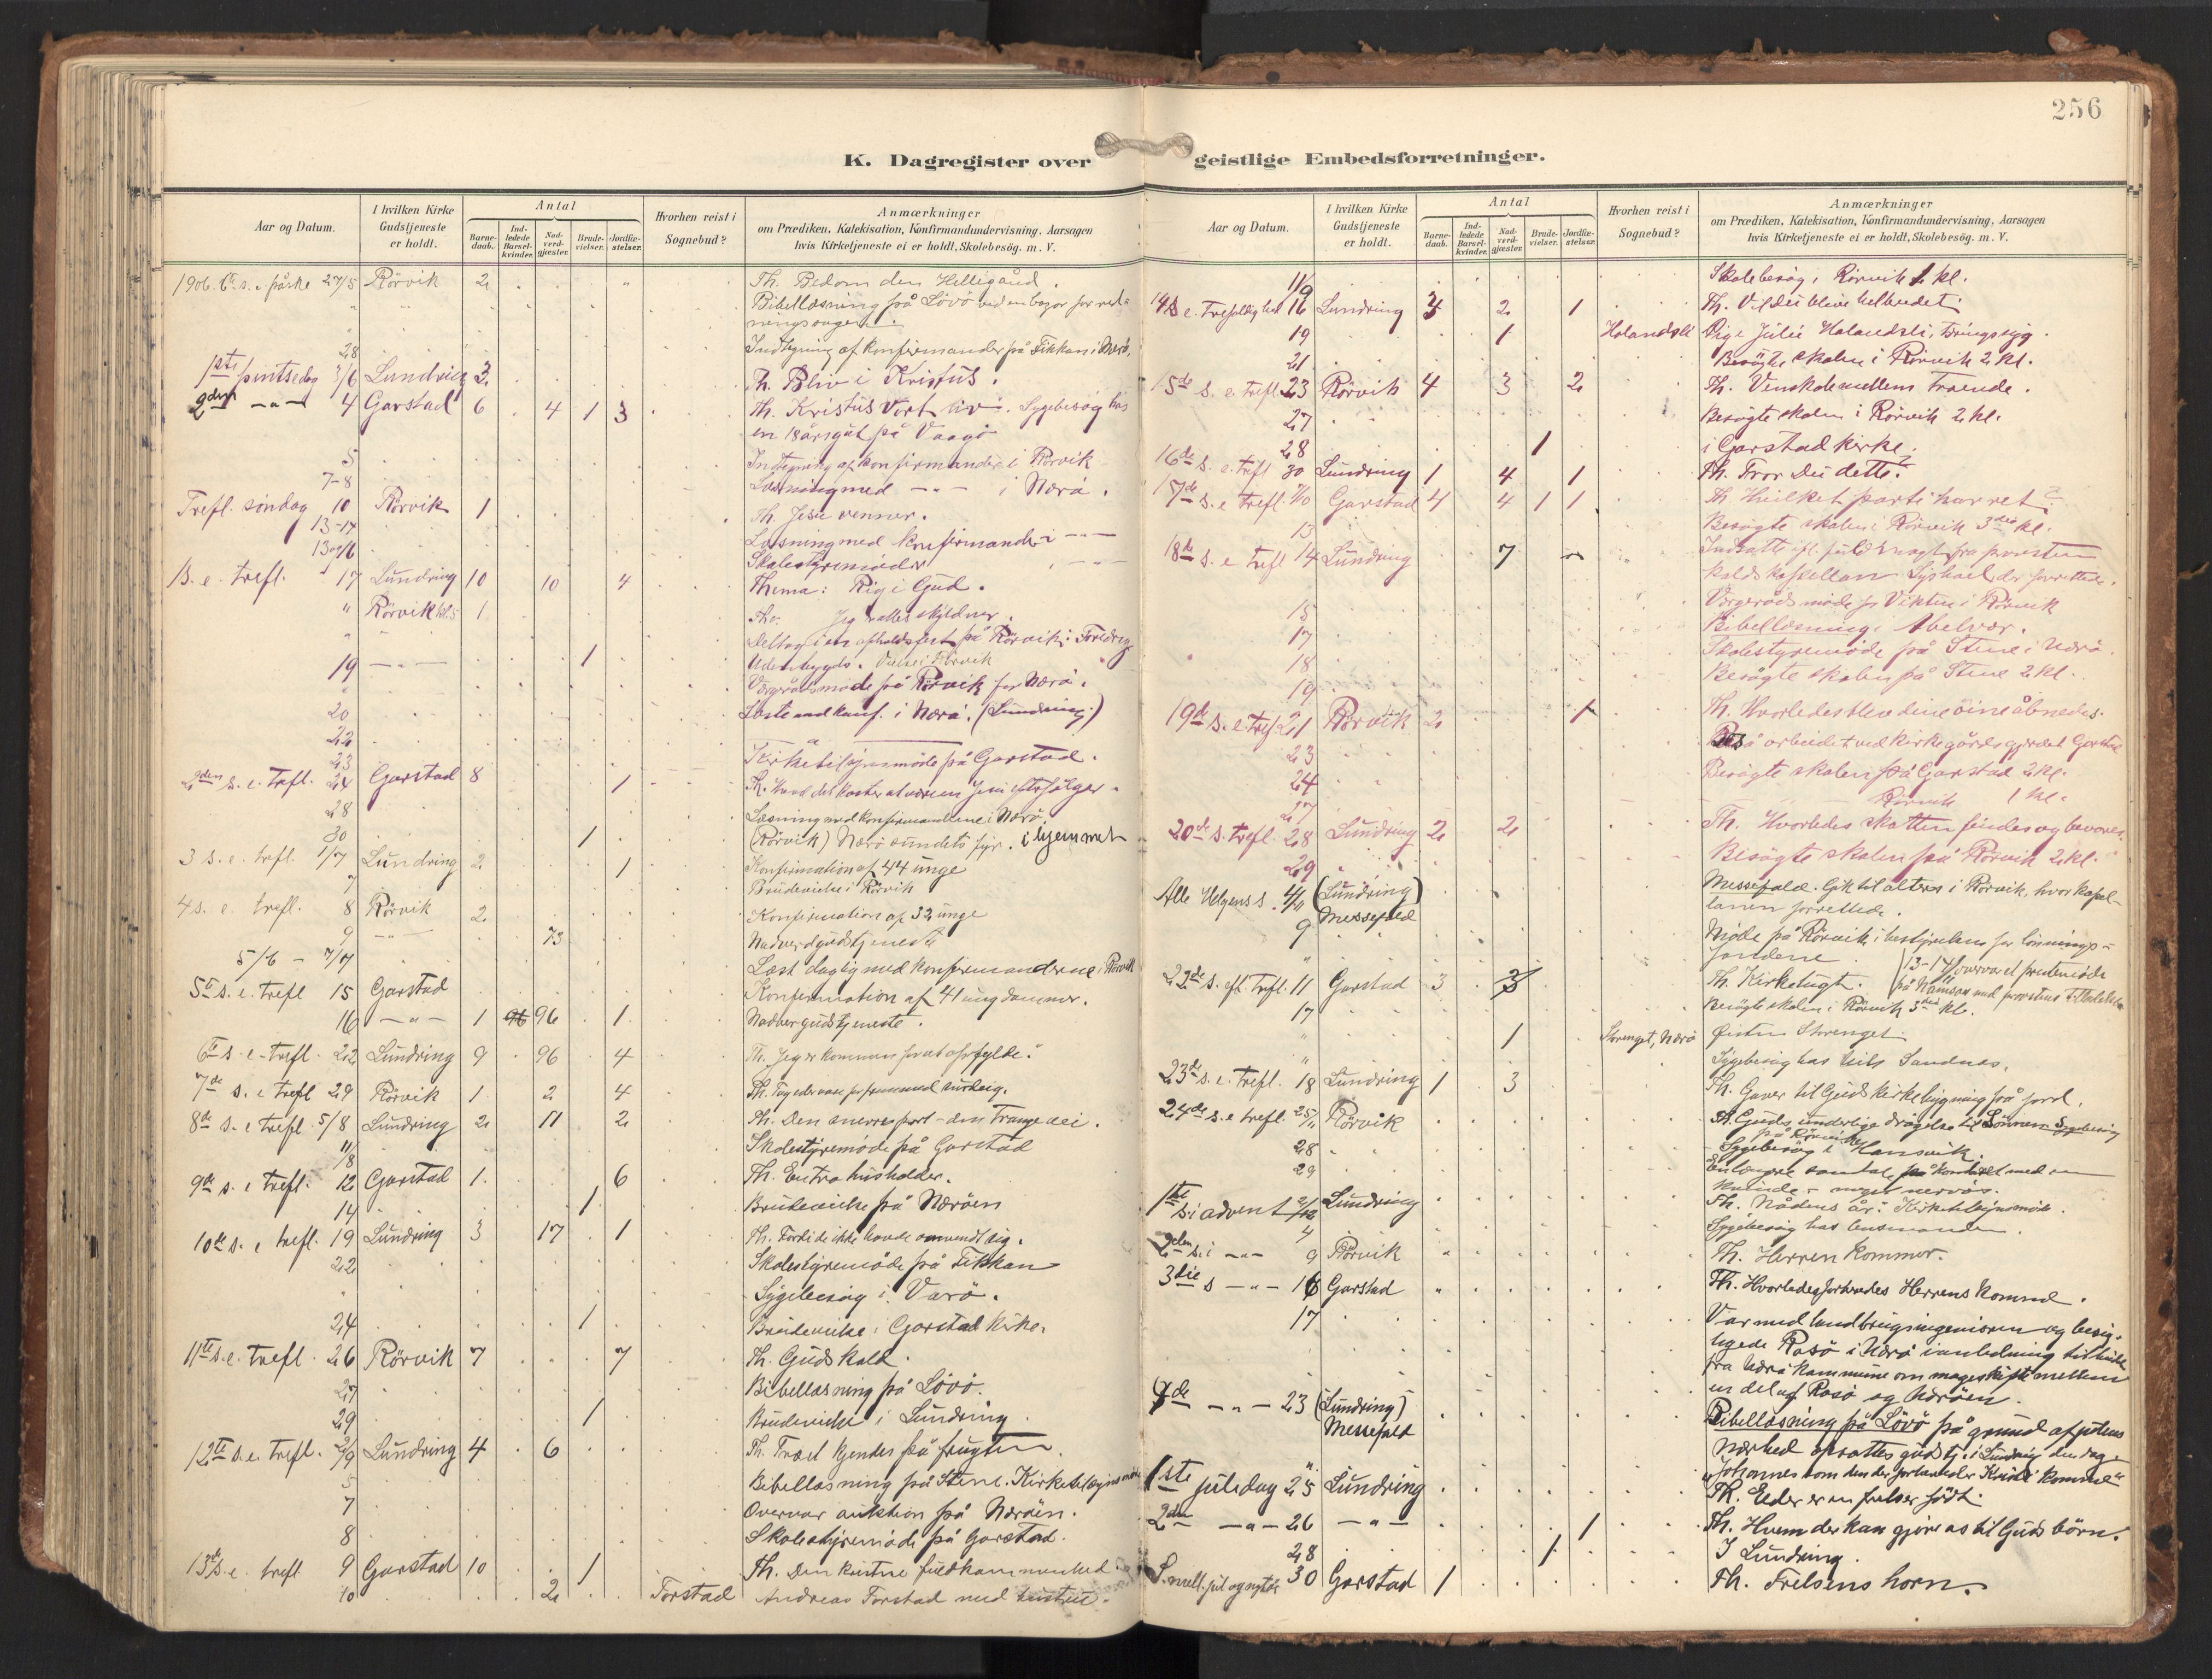 256
K. Dagregister over geistlige Embedsforretninger.
Aar og Datum.
I hvilken Kirke Gudstjeneste er holdt.
Antal
Barne-daab.
Ind-ledede Barsel-kvinder.
Nad-verd-gjæster.
Brude-vielser.
Jordfæ-stelser.
Hvorhen reist i Sognebud?
Anmærkninger
om Prædiken, Katekisation, Konfirmandundervisning, Aarsagen
hvis Kirketjeneste ei er holdt, Skolebesög. m. V.
1906. 6te s. e. påske 27/5 Rörvik 2 Th. Bedom den Helligånd.
Bibellæsning på Lövö
28 Indtegning af konfirmander på Tikkan i Nærö.
1ste pintsedag 3/6 Lundring 3 Th. Bliv i Kristus.
2den -"- 4 Garstad 6 4 1 3 Th. Kristus vort liv. Sygebesög hos
en 18 årsgut på Vaagö
5 Indtegning af konfirmander i Rörvik
7-8 Læsning med -"- i Nærö.
Trefl. söndag 10 Rörvik 1 Th. Jesu venner.
13-14 Læsning med konfirmander i -"-
Skolestyremöde
1 s. e. trefl. 17 Lundring 10 10 4 Thema: Rig i Gud.
" Rörvik kl. 5 1 Th. Jeg skyldner.
Deltog i en afholdsfest på Rörvik: Foredrag
19 -"- 1 Udenbygds. Vielse i Rörvik
" Værgerådsmöde på Rörvik for Nærö.
20 Læste med konf. i Nærö. (Lundring)
22
23 Kirketilsynsmöde på Garstad.
2den s. e. trefl. 24 Garstad 8 1 Th. Hvad det koster at være en Jesu efterfölger.
28 Læsning med konfirmanderne i Nærö.
30 1 (Rörvik) Nærösundets fyr. i hjemmet
3 s. e. trefl. 1/7 Lundring 2 1 Konfirmation af 44 unge
7 Brudevielse i Rörvik
4 s. e. trefl. 8 Rörvik 2 Konfirmation af 32 unge
9 -"- 73 Nadverdgudstjeneste
5/6 - 7/7 Læst daglig med konfirmanderne i Rörvik
5te s. e. trefl 15 Garstad Konfirmation af 41 ungdommer.
16 -"- 1 96 1 Nadvergudstjeneste.
6te s. e. trefl. 22 Lundring 9 96 4 Th. Jeg er kommen for at opfylde.
7de s. e. trefl 29 Rörvik 1 2 4 Th. Tag eder vare for surdeig.
8de s. e. trefl. 5/8 Lundring 2 11 2 Th. Den snevre port - den trange vei.
11/8 Skolestyremöde på Garstad
9de s. e. trefl. 12 Garstad 1 6 Th. En tro husholder.
14 1 Brudevielse på Næröen
10de s. e. trefl. 19 Lundring 3 17 1 Th. Fordi de ikke havde omvendt sig.
22 Skolestyremöde på Tikkan
" Sygebesög i Værö.
24 1 Brudevielse i Garstad kirke.
11te s. e. trefl. 26 Rörvik 7 7 Th. Guds kald.
27 Bibellæsning på Lövö.
29 1 Brudevielse i Lundring.
12te s. e. trefl. 2/9 Lundring 4 6 Th. Træet kjendes på frugten.
5 Bibellæsning på Stene. Kirketilsynsmöde
7 Overvar auktion på Næröen.
8 Skolestyremöde på Garstad.
13de s. e. trefl 9 Garstad 10 1 Th. Den kristne fuldkommenhed
10 2 Torstad Andreas Torstad med hustru.
Aar og Datum.
I hvilken Kirke Gudstjeneste er holdt.
Antal
Barne-daab.
Ind-ledede Barsel-kvinder.
Nad-verd-gjæster.
Brude-vielser.
Jordfæ-stelser.
Hvorhen reist i Sognebud?
Anmærkninger
om Prædiken, Katekisation, Konfirmandundervisning, Aarsagen
hvis Kirketjeneste ei er holdt, Skolebesög. m. V.
11/9 Skolebesög i Rörvik 1 kl.
14de s. e. Trefoldighed 16 Lundring 3 2 1 Th. Vil du blive helbredet?
19 1 Holandsli Pige Julie Holandsli, tæringssyg.
21 Besögte skolen i Rörvik 2 kl.
15de s. e. trefl. 23 Rörvik 4 3 2 Th. Venskab mellem frænde.
27 Besögte skolen i Rörvik 2 kl.
28 1 i Garstad kirke.
16de s. e. trefl 30 Lundring 1 4 1 Th. Tror Du dette?
17de s. e. trefl. 7/10 Garstad 4 4 1 1 Th. Hvilket parti har ret?
13 Besögte skolen i Rörvik 3die kl.
18de s. e. trefl 14 Lundring 7 Indsatte ifl. fuldmagt fra provsten
Værgerådsmöde for Vikten i Rörvik
15 Bibellæsning i Abelvær.
17 Skolestyremöde på Stene i Nærö.
18 Besögte skolen på Stene 2 kl.
19
19de s. e. trefl. 21 Rörvik 2 1 Th. Hvorledes blev dine öine åbnedes.
23 Beså arbeidet ved kirkegårdsgjærdet Garstad
24 Besögte skolen på Garstad 2 kl.
27 Rörvik 1 kl.
20de s. trefl. 28 Lundring 2 2 Th. Hvorledes skatten findes og bevares.
29 Besögte skolen på Rörvik 2 kl.
Alle Helgens s. 4/11 (Lundring) Messefald Messefald. Gik til alters i Rörvik, hvor kapel-
lanen forrettede.
9 Möde på Rörvik i bestyrelsen for lönnings-
fondene.
22de s. eft. Trefl. 11 Garstad 3 3 Th. Kirketugt. 13-14/ overvar et prestemöde på Namsos med provstens tilladelse
17 Besögte skolen i Rörvik 3die kl.
" 1 Storenget, Nærö Östen Storenget
" Sygebesög hos Nils Sandnes.
23de s. e. trefl. 18 Lundring 1 3 Th. Gaver til Guds kirkebygning på jord.
24de s. e trefl. 25/11 Rörvik Th. Guds underlige dragelse til Sönnen. Sygebesög på Rörvik
28 Sygebesög i Hansvik.
29 En længere samtale på kontoret med en
kvinde - meget nervös.
1ste s. i advent 2/12 Lundring Th. Nådens år: Kirketilsynsmöde.
4 Sygebesög hos lensmanden.
2den s. i -"- 9 Rörvik Th. Herren kommer.
3die s -"- 16 Garstad Th. Hvorledes forberedes Herrens komme.
17 Var med landbrugsingeniören og besig-
tigede Rosö i Nærö i anledning
fra Nærö kommune om mageskifte mellem
en del af Rosö og Næröen.
4de -"- 23 (Lundring) Messefald Bibellæsning på Lövö på grund af julens
nærhed opsattes gudstj. i Lundring den dag.
"Johannes som den der forbereder Kristi komme"
1ste juledag 25 Lundring Th. Eder er en frelser födt.
2den -"- 26 -"- 1 Th. Hvem der kan gjöre os til Guds börn.
28 1 I Lundring.
S. mell. jul og nytår 30 Garstad 1 Th. Frelsens horn.